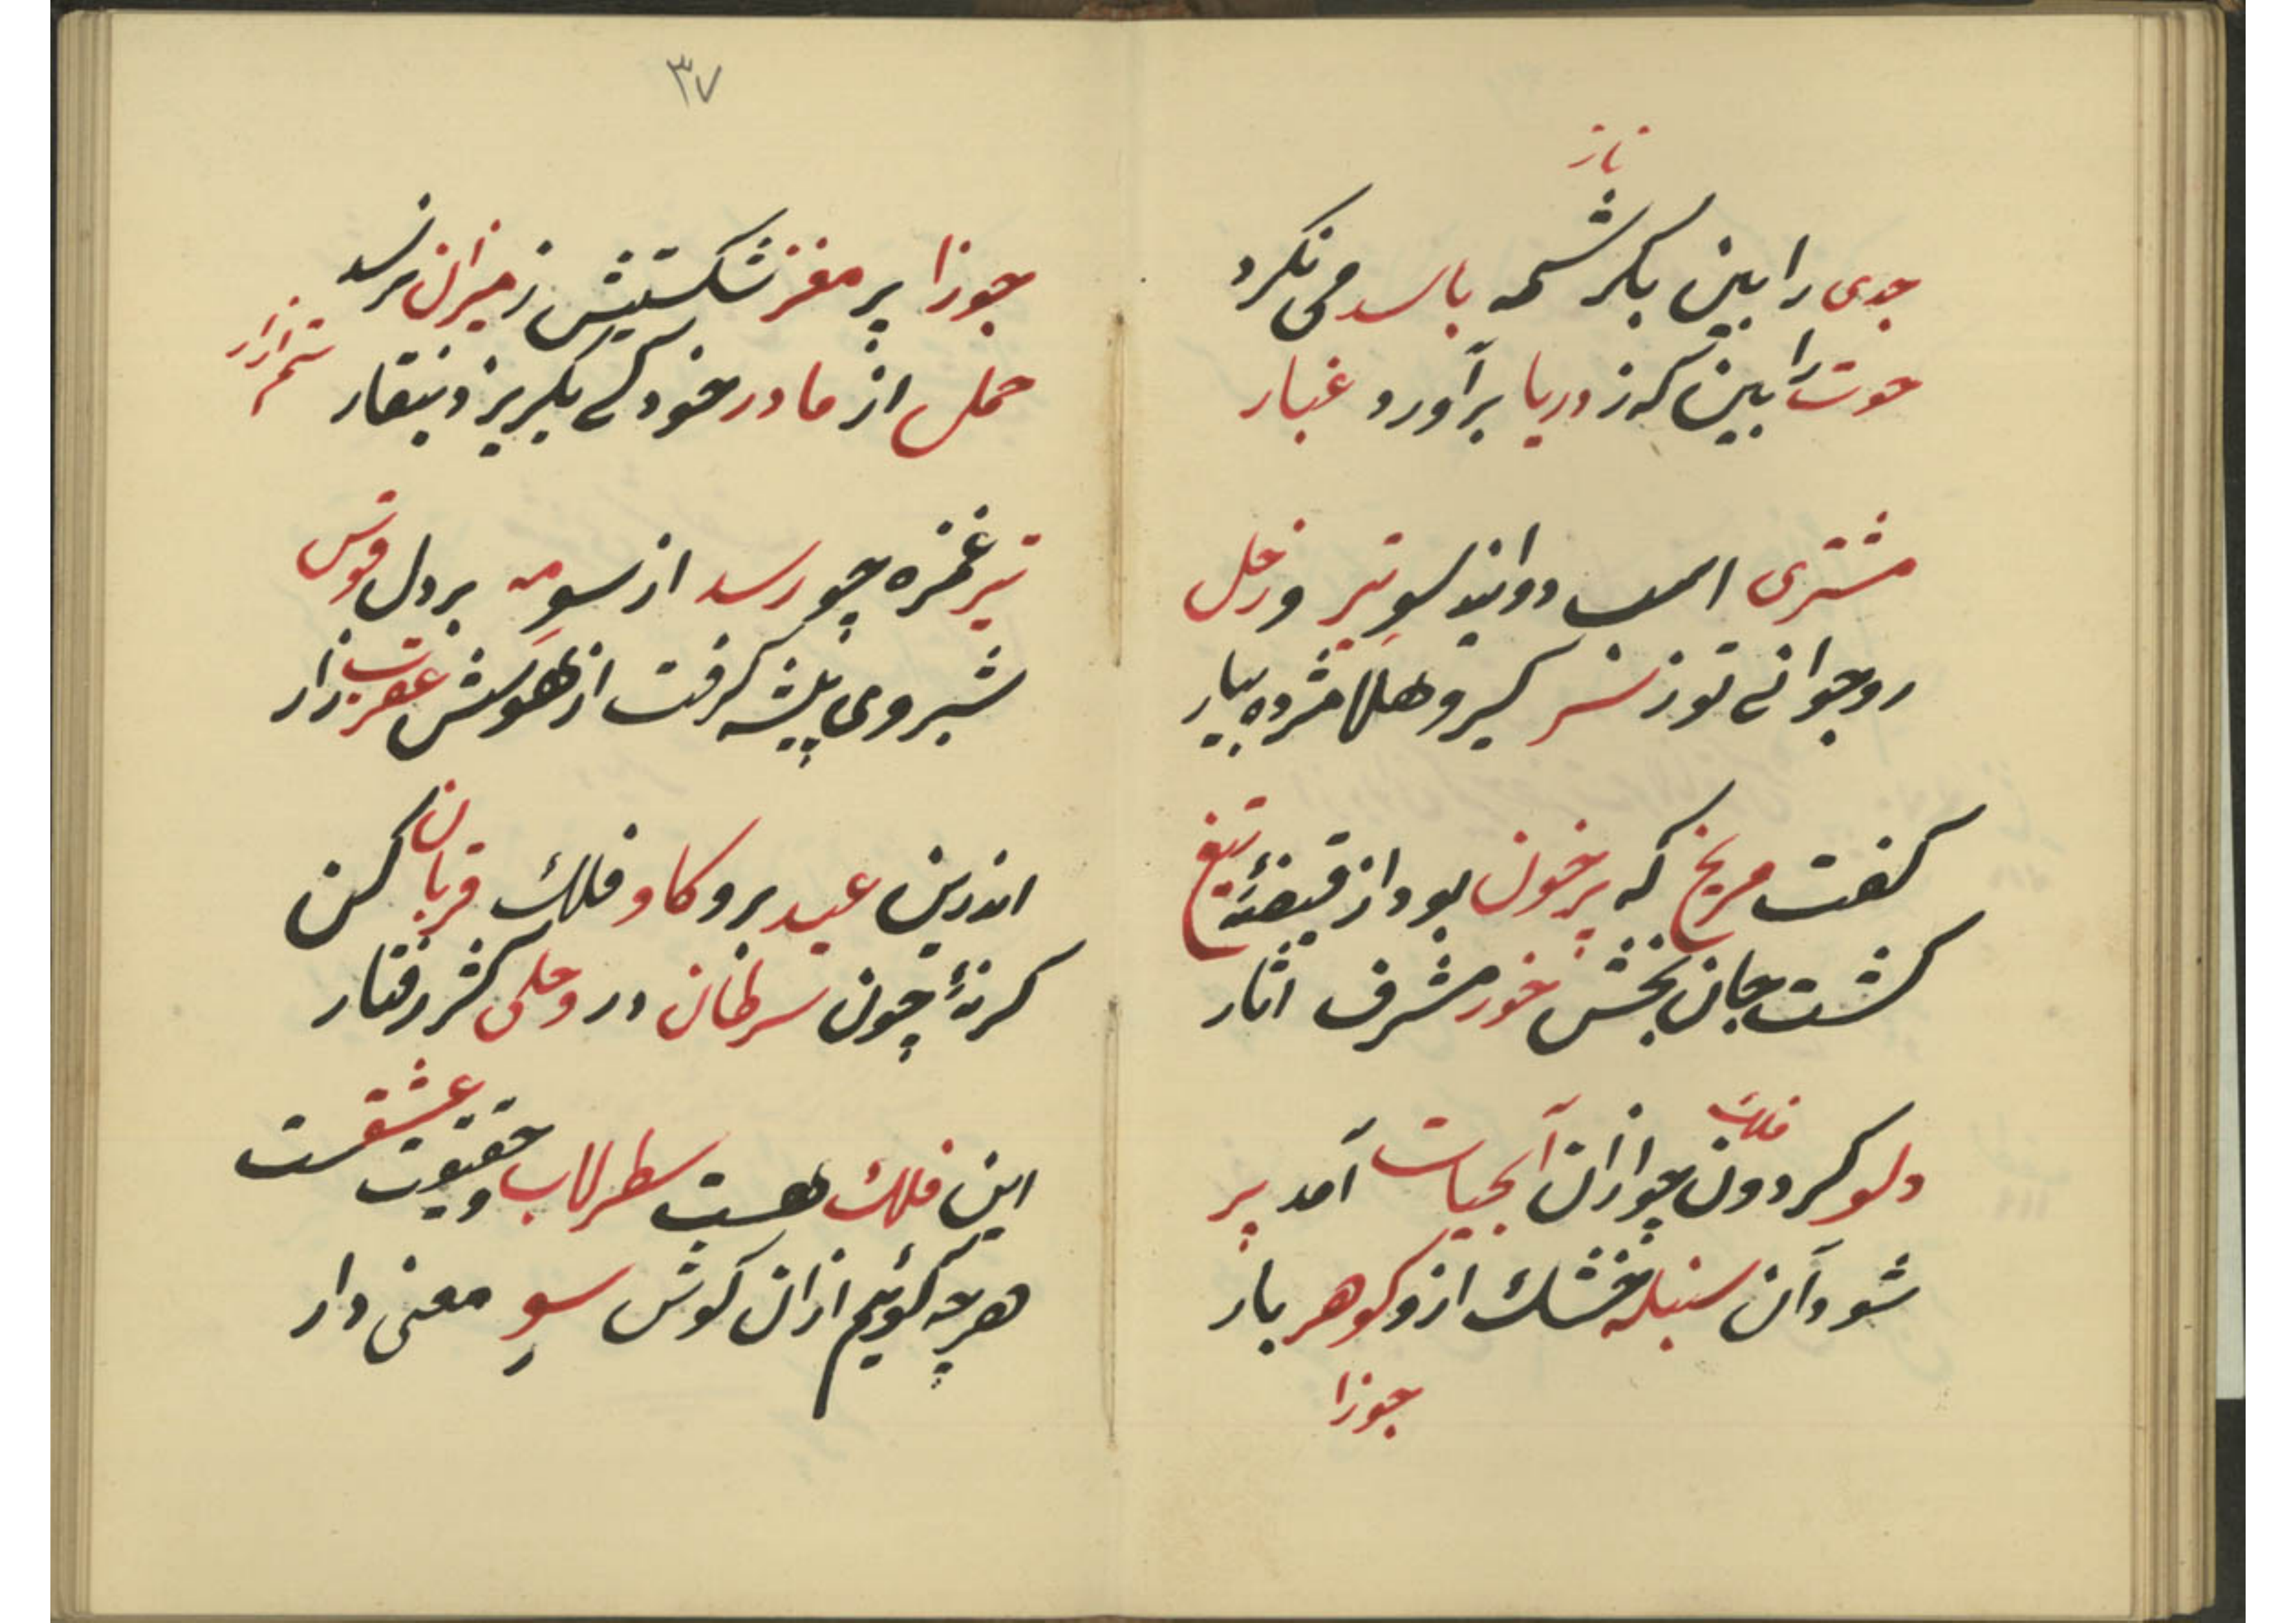 ناز
جدی را بین بکرشمه باسد می نکرد
حوت را بین که ز دریا برآورد غبار
مشتری اسب دواند سوِ تیر و زحل
رو جوانی تو ز سر گیر و هلا مژده بیار
کفت مریخ که پرخون بود از قبضهٔ تیغ
کشت جان بخش خور مشرف اثار
فلک
دلو کردون چو ازان آبحیات آمد پر
شود آن سنبله خشک ازو کوهر بار
جوزا
۳۷
جوزا پر مغز شکستیش ز میزان نرسد
حمل از مادر خود کی بکریزد بنقار
تیر غمزه چو رسد از سوِ مه بر دل قوس
شبروی پیشه کرفت از هوسش عقرب زار
اندرین عید برو کاو فلک قربان کن
کرنهٔ چون سرطان در وحلی کژ رفتار
این فلک هست سطرلاب و حقیقت عشقست
هرچه کوئیم ازان کوش سوِ معنی دار